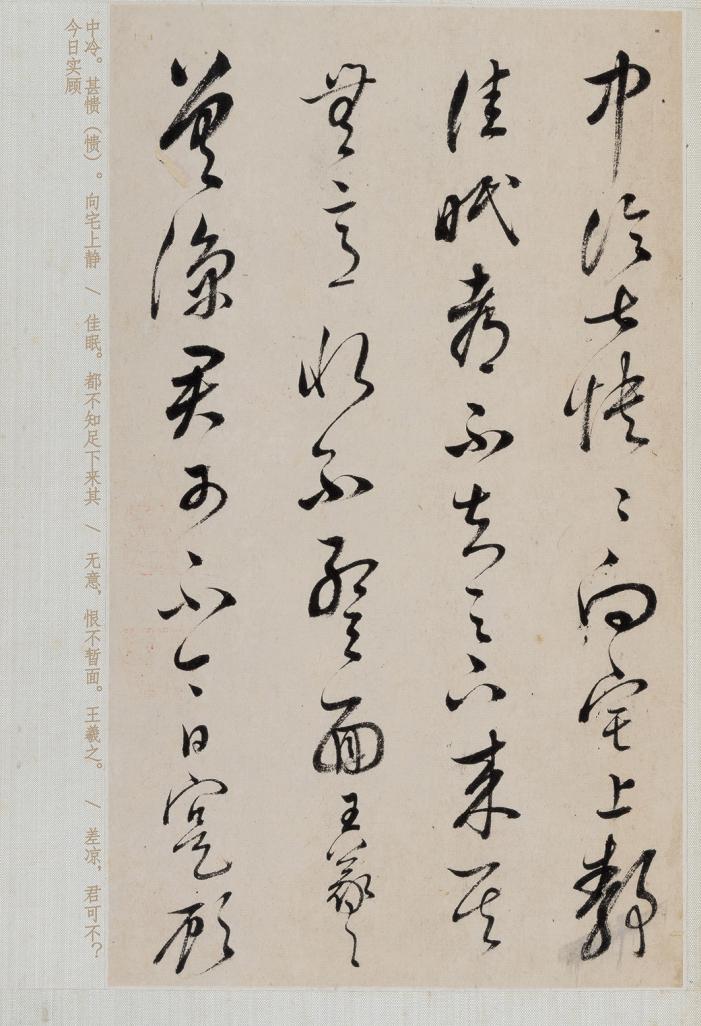 中冷甚憒〻向宅上靜
佳眠都不知足下来甚
無意恨不暫面王羲之
差涼君可不今日寔顧
中冷。甚愦（愦）。向宅上静 \ 佳眠。都不知足下来其 \ 无意，恨不暂面。王羲之。 \ 差凉，君可不？
今日实顾